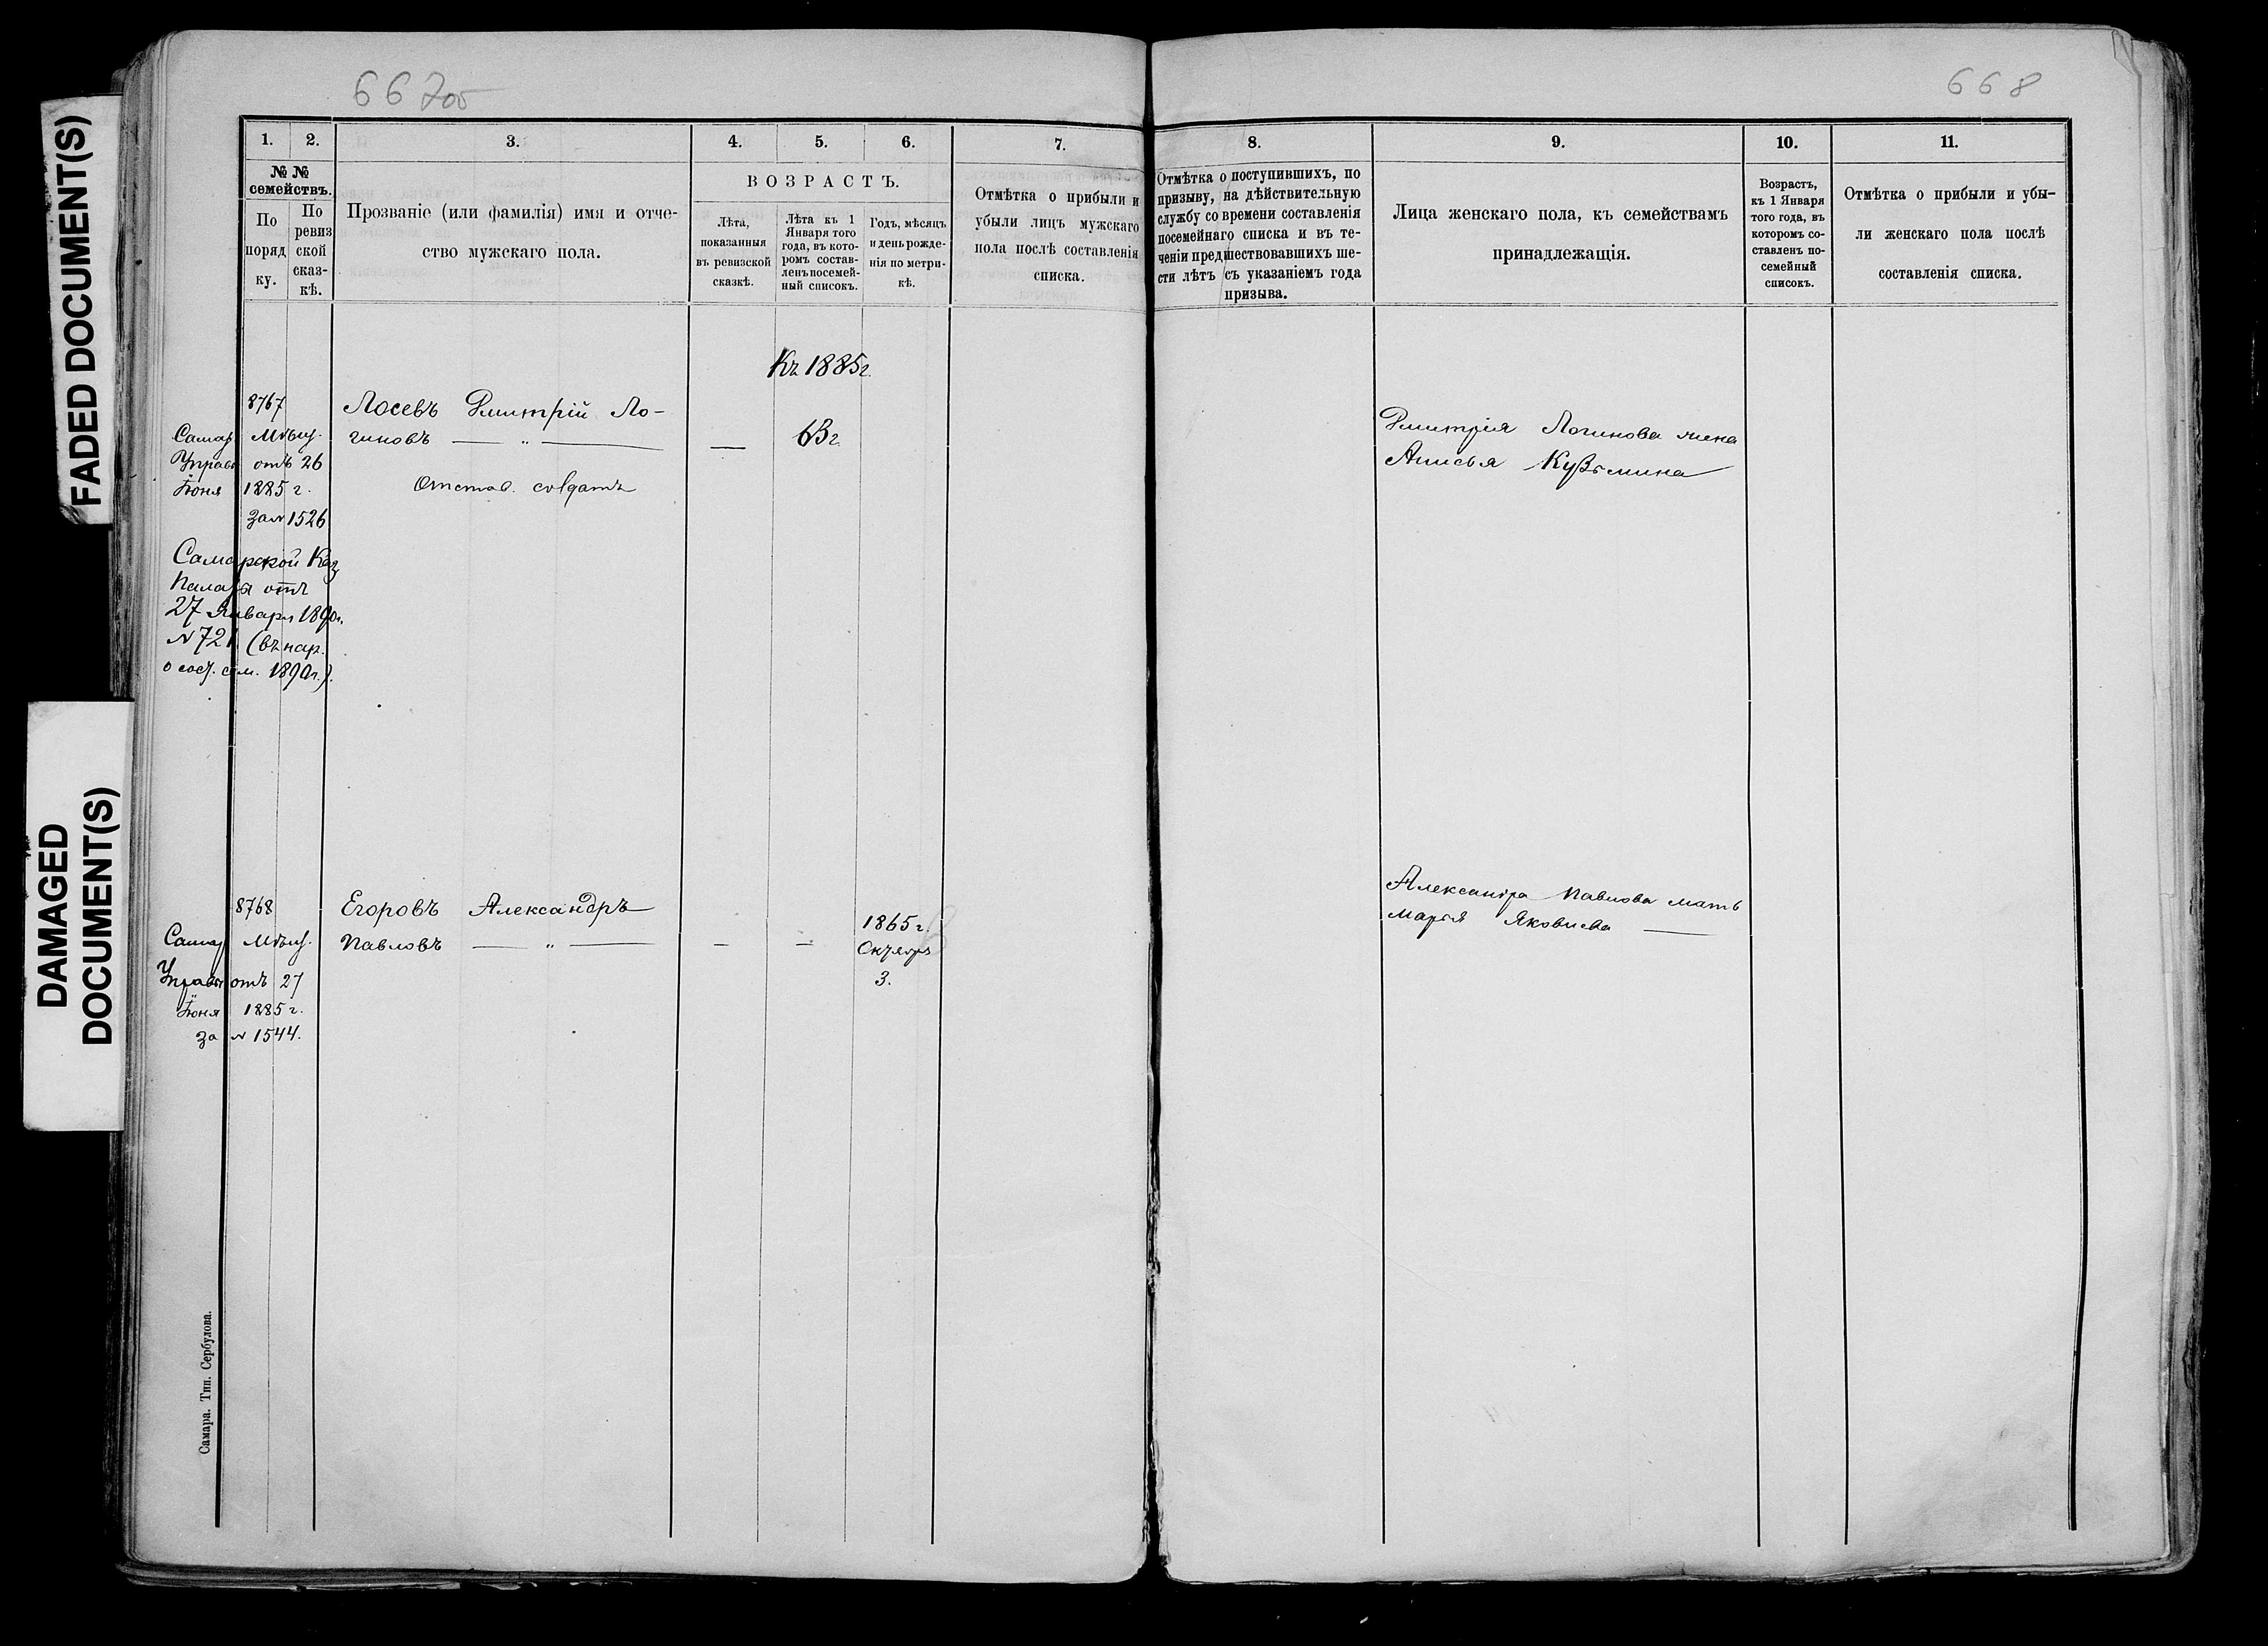 667об
668
FADED DOCUMENT(S)
DAMAGED
DOCUMENT(S)
1.
2.
3.
4.
5.
6.
7.
8.
9.
10.
11.
№ №
семействъ.
По
поряд
ку.
По
ревиз
ской
сказ-
кѣ.
Прозваніе (или фамилія) имя и отче-
ство мужскаго пола.
ВОЗРАСТЪ.
Лѣта,
показанныя
въ ревизской
сказкѣ.
Лѣта къ 1
Января того
года, въ кото-
ромъ состав-
ленъ посемей-
ный списокъ.
Годъ, мѣсяцъ
и день рожде-
нія по метри-
кѣ.
Отмѣтка о прибыли и
убыли лицъ мужскаго
пола послѣ составленія
списка.
Отмѣтка о поступившихъ, по
призыву, на дѣйствительную
службу со времени составленія
посемейнаго списка и въ те-
ченіи предшествовавшихъ ше-
сти лѣтъ съ указаніемъ года
призыва.
Лица женскаго пола, къ семействамъ
принадлежащія.
Возрастъ,
къ 1 Января
того года, въ
которомъ со-
ставленъ по-
семейный
списокъ.
Отмѣтка о прибыли и убы-
ли женскаго пола послѣ
составленія списка.
Къ 1885 г.
8767
Самар Мѣщ.
Управы отъ 26
Іюня 1885 г.
за № 1526
Самарской Каз
Палаты отъ
27 Января 1890 г.
№ 721 (въ нар.
о сост. сем. 1890 г.).
Лосевъ Дмитрій Ло-
гиновъ — „ —
Отстав. солдатъ
—
63 г.
Дмитрія Логинова жена
Анисья Кузьмина
8768
Самар Мѣщ.
Управы отъ 27
Іюня 1885 г.
за № 1544.
Егоровъ Александръ
Павловъ — „ —
—
—
1865 г.
Октября
3.
Александра Павлова мать
Марья Яковлева —
Самара. Тип. Сербулова.